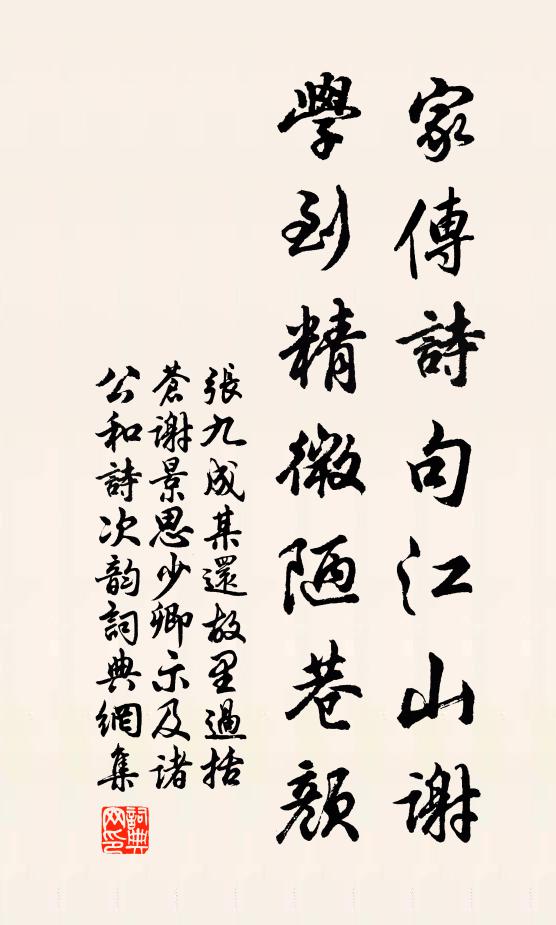 家傳詩句江山謝
學到精微陋巷顏
張九成某還故里過括
蒼謝景思少卿示及諸
公和詩次韵詞典網集
詞典網印